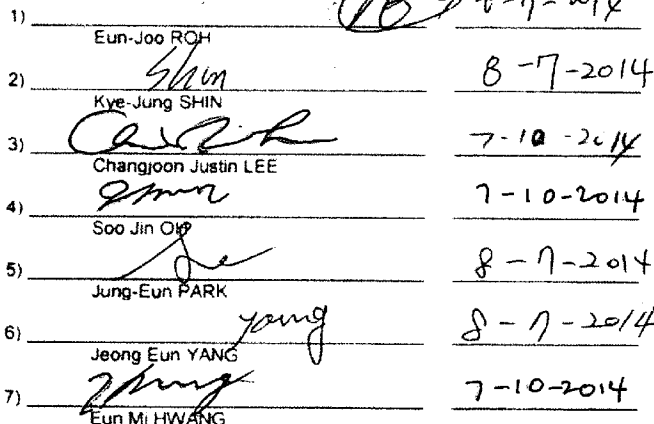 1) 8-7-2014
Eun-Joo ROH
2) Shin 8-7-2014
Kye-Jung SHIN
3) 7-10-2014
Changjoon Justin LEE
4) 7-10-2014
Soo Jin OH
5) 8-7-2014
Jung-Eun PARK
6) young 8-7-2014
Jeong Eun YANG
7) 7-10-2014
Eun Mi HWANG